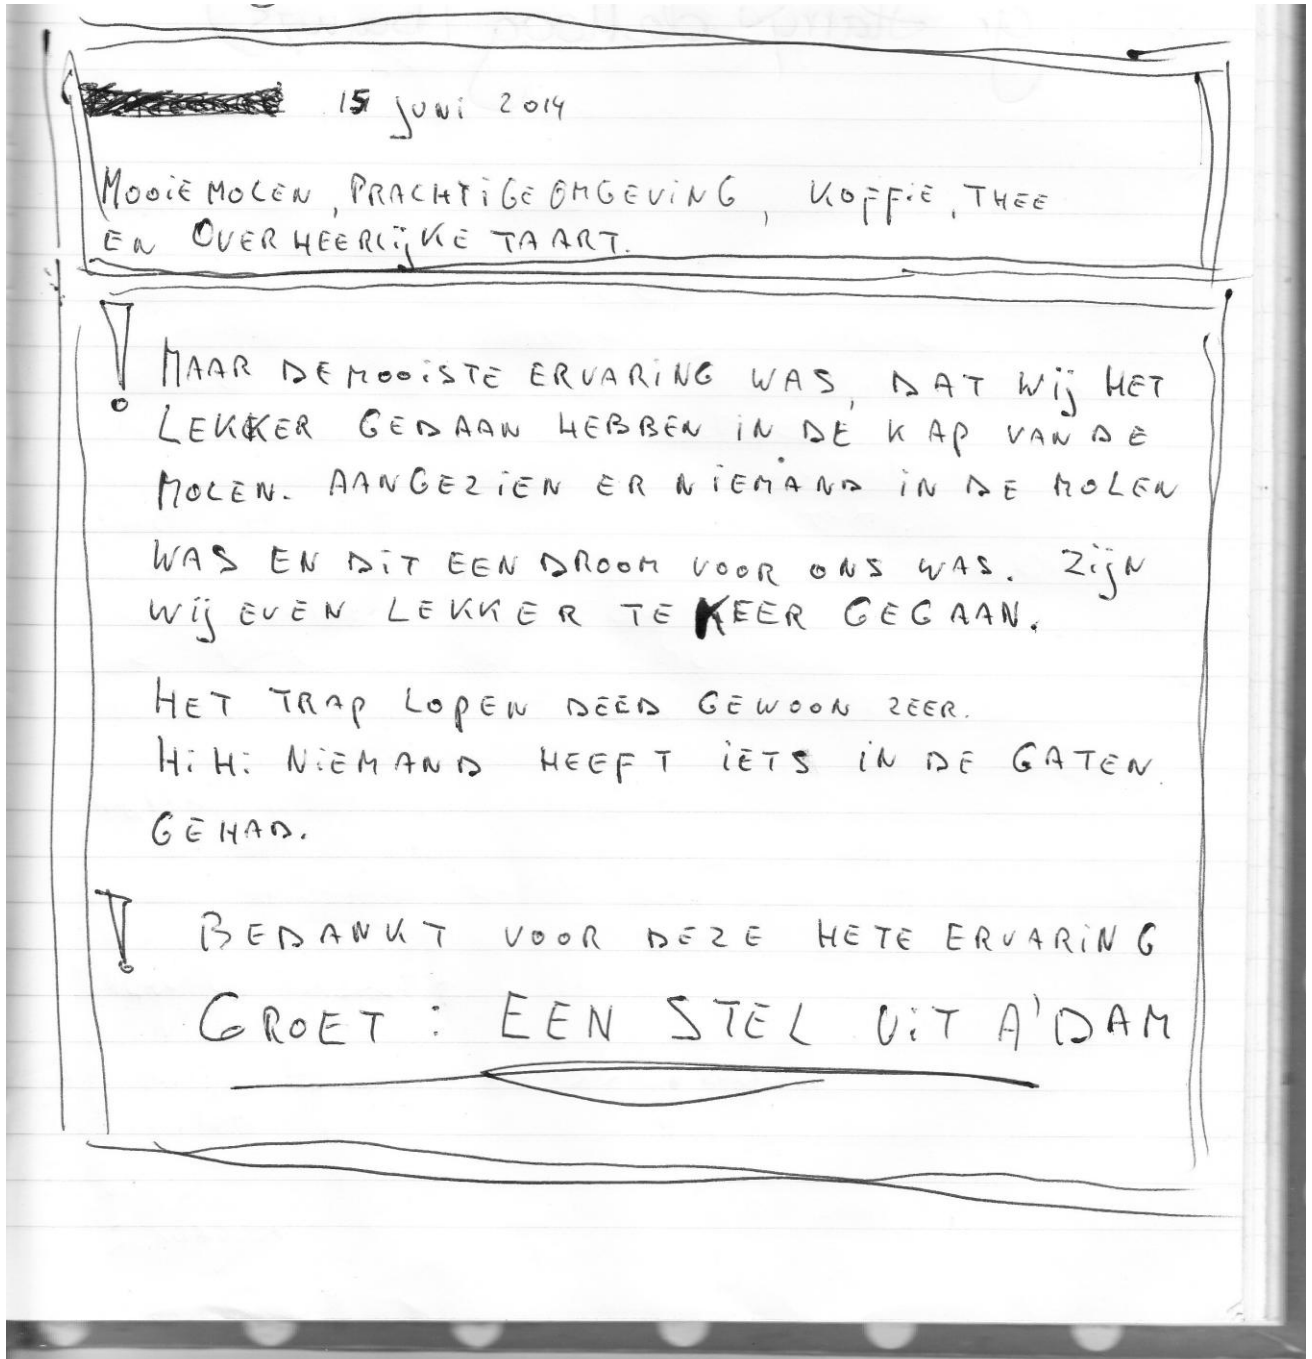 15 juni 2014
MOOIE MOLEN, PRACHTIGE OMGEVING, KOFFIE, THEE
EN OVERHEERLIJKE TAART.
! MAAR DE MOOISTE ERVARING WAS, DAT WIJ HET
LEKKER GEDAAN HEBBEN IN DE KAP VAN DE
MOLEN. AANGEZIEN ER NIEMAND IN DE MOLEN
WAS EN DIT EEN DROOM VOOR ONS WAS. ZIJN
WIJ EVEN LEKKER TE KEER GEGAAN.
HET TRAP LOPEN DEED GEWOON ZEER.
HiHi NIEMAND HEEFT IETS IN DE GATEN
GEHAD.
! BEDANKT VOOR DEZE HETE ERVARING
GROET : EEN STEL UIT A'DAM